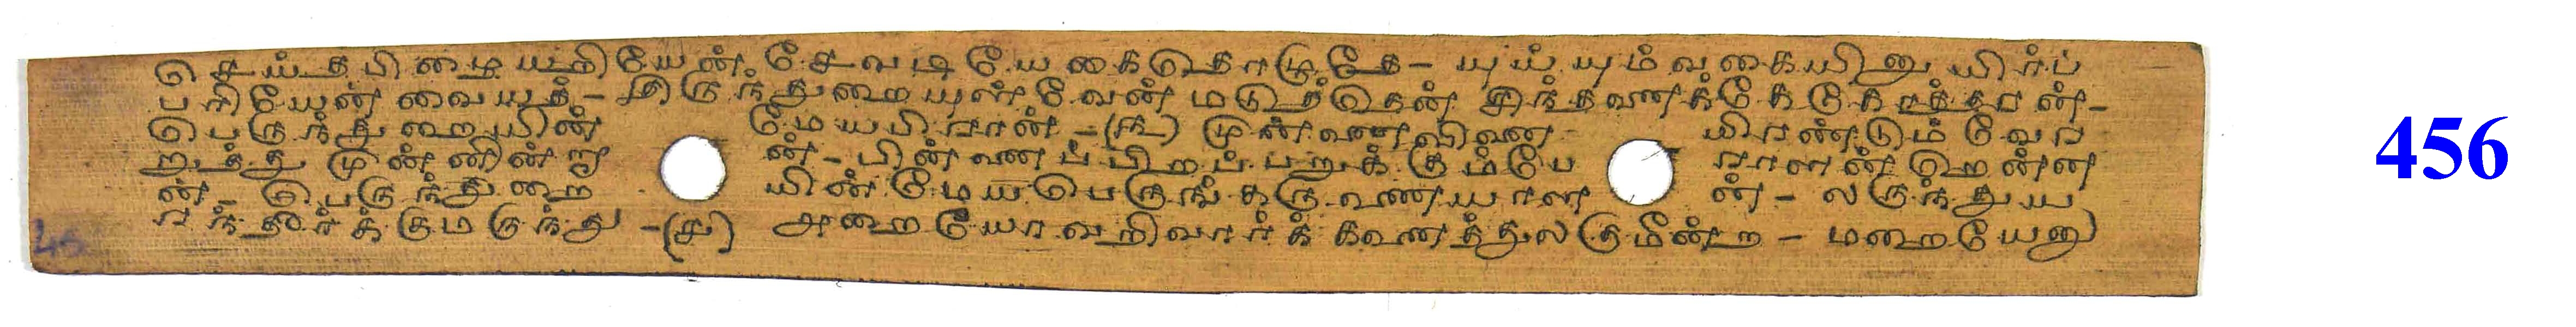 செய்தபிழையறியேன் சேவடியேகைதொழுதே - யுய்யும்வகையினுயிர்ப்
பறியேன் வையத் - திருந்துறையுள்வேன்மடுத்தென் சிந்தனைக்கேகோத்தான் -
பெருந்துறையின் மேயபிரான் - (௩) முன்னைவினை யிரண்டும்வேர
றுத்து முன்னின்றா ன் - பின்னைப்பிறப்பறுக்கும்பே ராளன்றென்ன
ன் - பெருந்துறை யின்மேயபெருங்கருணையாள ன் - வருந்துய
ரந்தீர்க்குமருந்து - (௪) அறையோவறிவார்க் கனைத்துலகுமீன்ற - மறையோனு
456